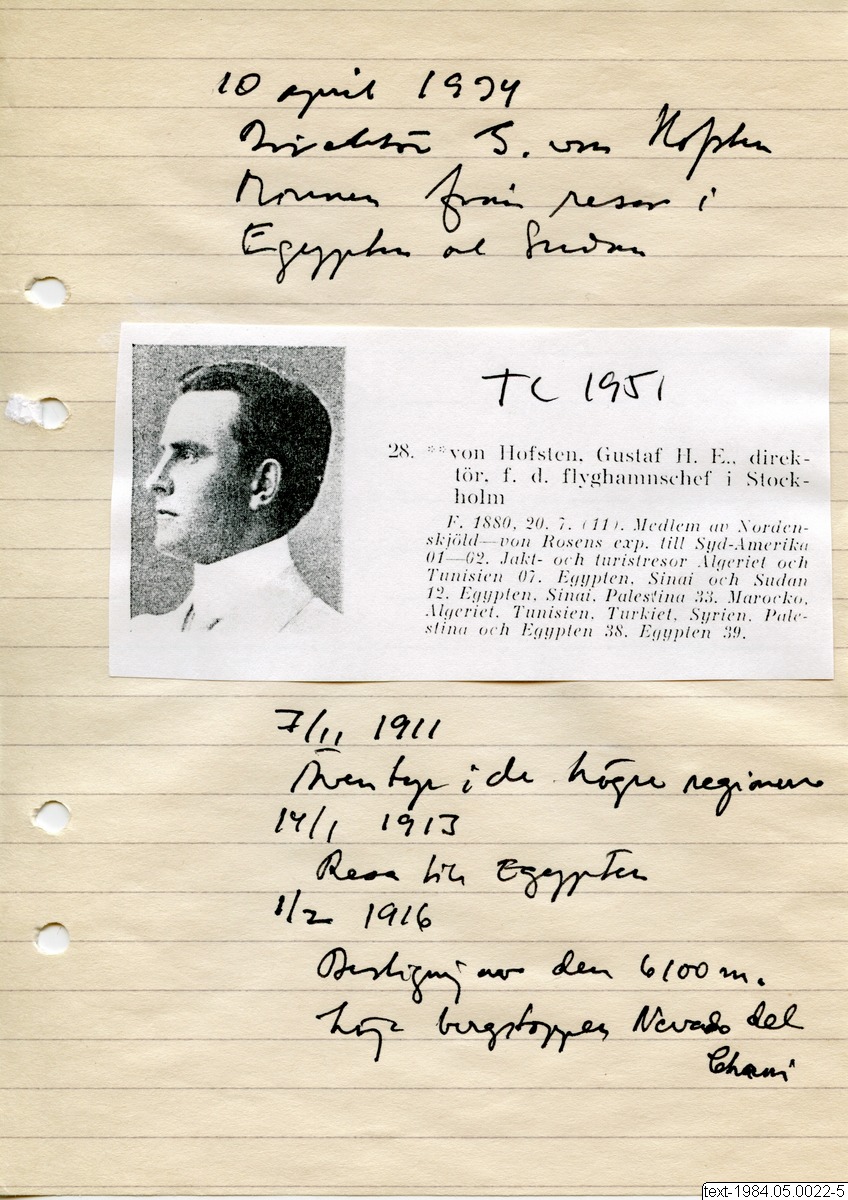 10 april 1934
Direktör G. von Hofsten
Minnen från resor i
Egypten och Sudan
TC 1951
28. **von Hofsten, Gustaf H. E., direk-
tör, f. d. flyghamnschef i Stock-
holm
F. 1880, 20. 7. (11). Medlem av Norden-
skjöld—von Rosens exp. till Syd-Amerika
01—02. Jakt- och turistresor Algeriet och
Tunisien 07. Egypten, Sinai och Sudan
12. Egypten, Sinai, Palestina 33. Marocko,
Algeriet, Tunisien, Turkiet, Syrien, Pale-
stina och Egypten 38. Egypten 39.
7/11 1911
Äventyr i de högre regionerna
14/1 1913
Resa till Egypten
1/2 1916
Bestigning av den 6100 m.
höga bergstoppen Nevado del
Chani
text-1984.05.0022-5